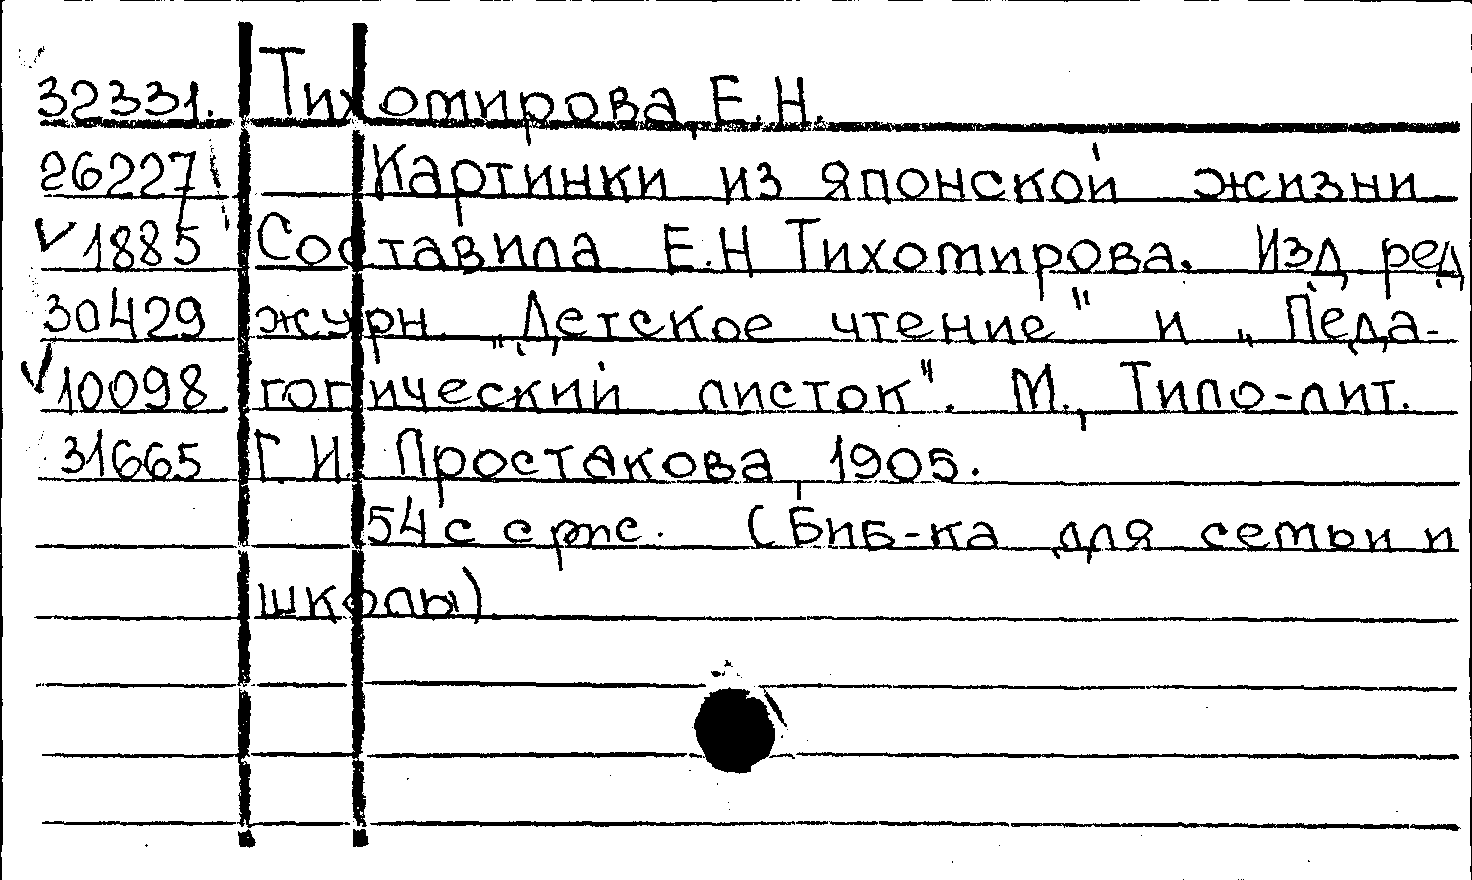 32331. Тихомирова, Е.Н.
26227 Картинки из японской жизни
√ 1885 Составила Е.Н Тихомирова. Изд. ред
30429 журн. „Детское чтение" и „Педа-
√ 10098 гогический листок". М., Типо-лит.
31665 Г.И. Простакова 1905.
54 с с рис. (Биб-ка для семьи и
школы)